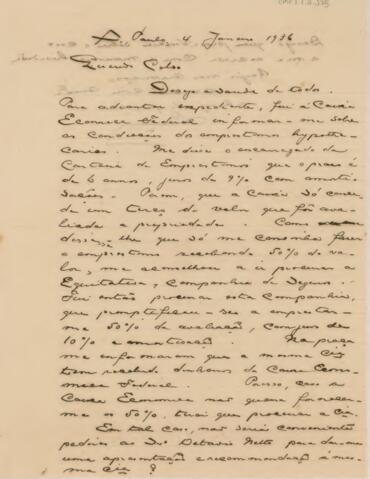 S. Paulo, 4 Janeiro 1936
Querido Celso
Desejo a saude de todos.
Para adeantar expediente, fui a Caixa
Economica Federal informar-me sobre
as condições dos emprestimos hypothe-
carios. Me disse o encarregado da
Carteira de Emprestimos que o praso é
de 6 annos, juros de 9% com amorti-
sações. Porem, que a Caixa só conce-
de um terço do valor que fôr ava-
liada a propriedade. Como
dissesse lhe que só me convinha fazer
o emprestimo recebendo 50% do va-
lor, me aconselhou a ir procurar a
Equitativa, Companhia de Seguros.
Fui então procurar esta Companhia,
que promptificou-se a emprestar-
me 50% da avaliação, com juros de
10% e amortisação. Na praça
me informaram que a mesma Cia
tem recebido dinheiros da Caixa Econo-
mica Federal. Posso, caso a
Caixa Economica não queira fornecer-
me os 50%, terei que procurar a Cia.
Em tal caso, não seria conveniente
pedires ao Dr. Octavio Netto para dar-me
uma apresentação e recommendação á mes-
ma Cia?